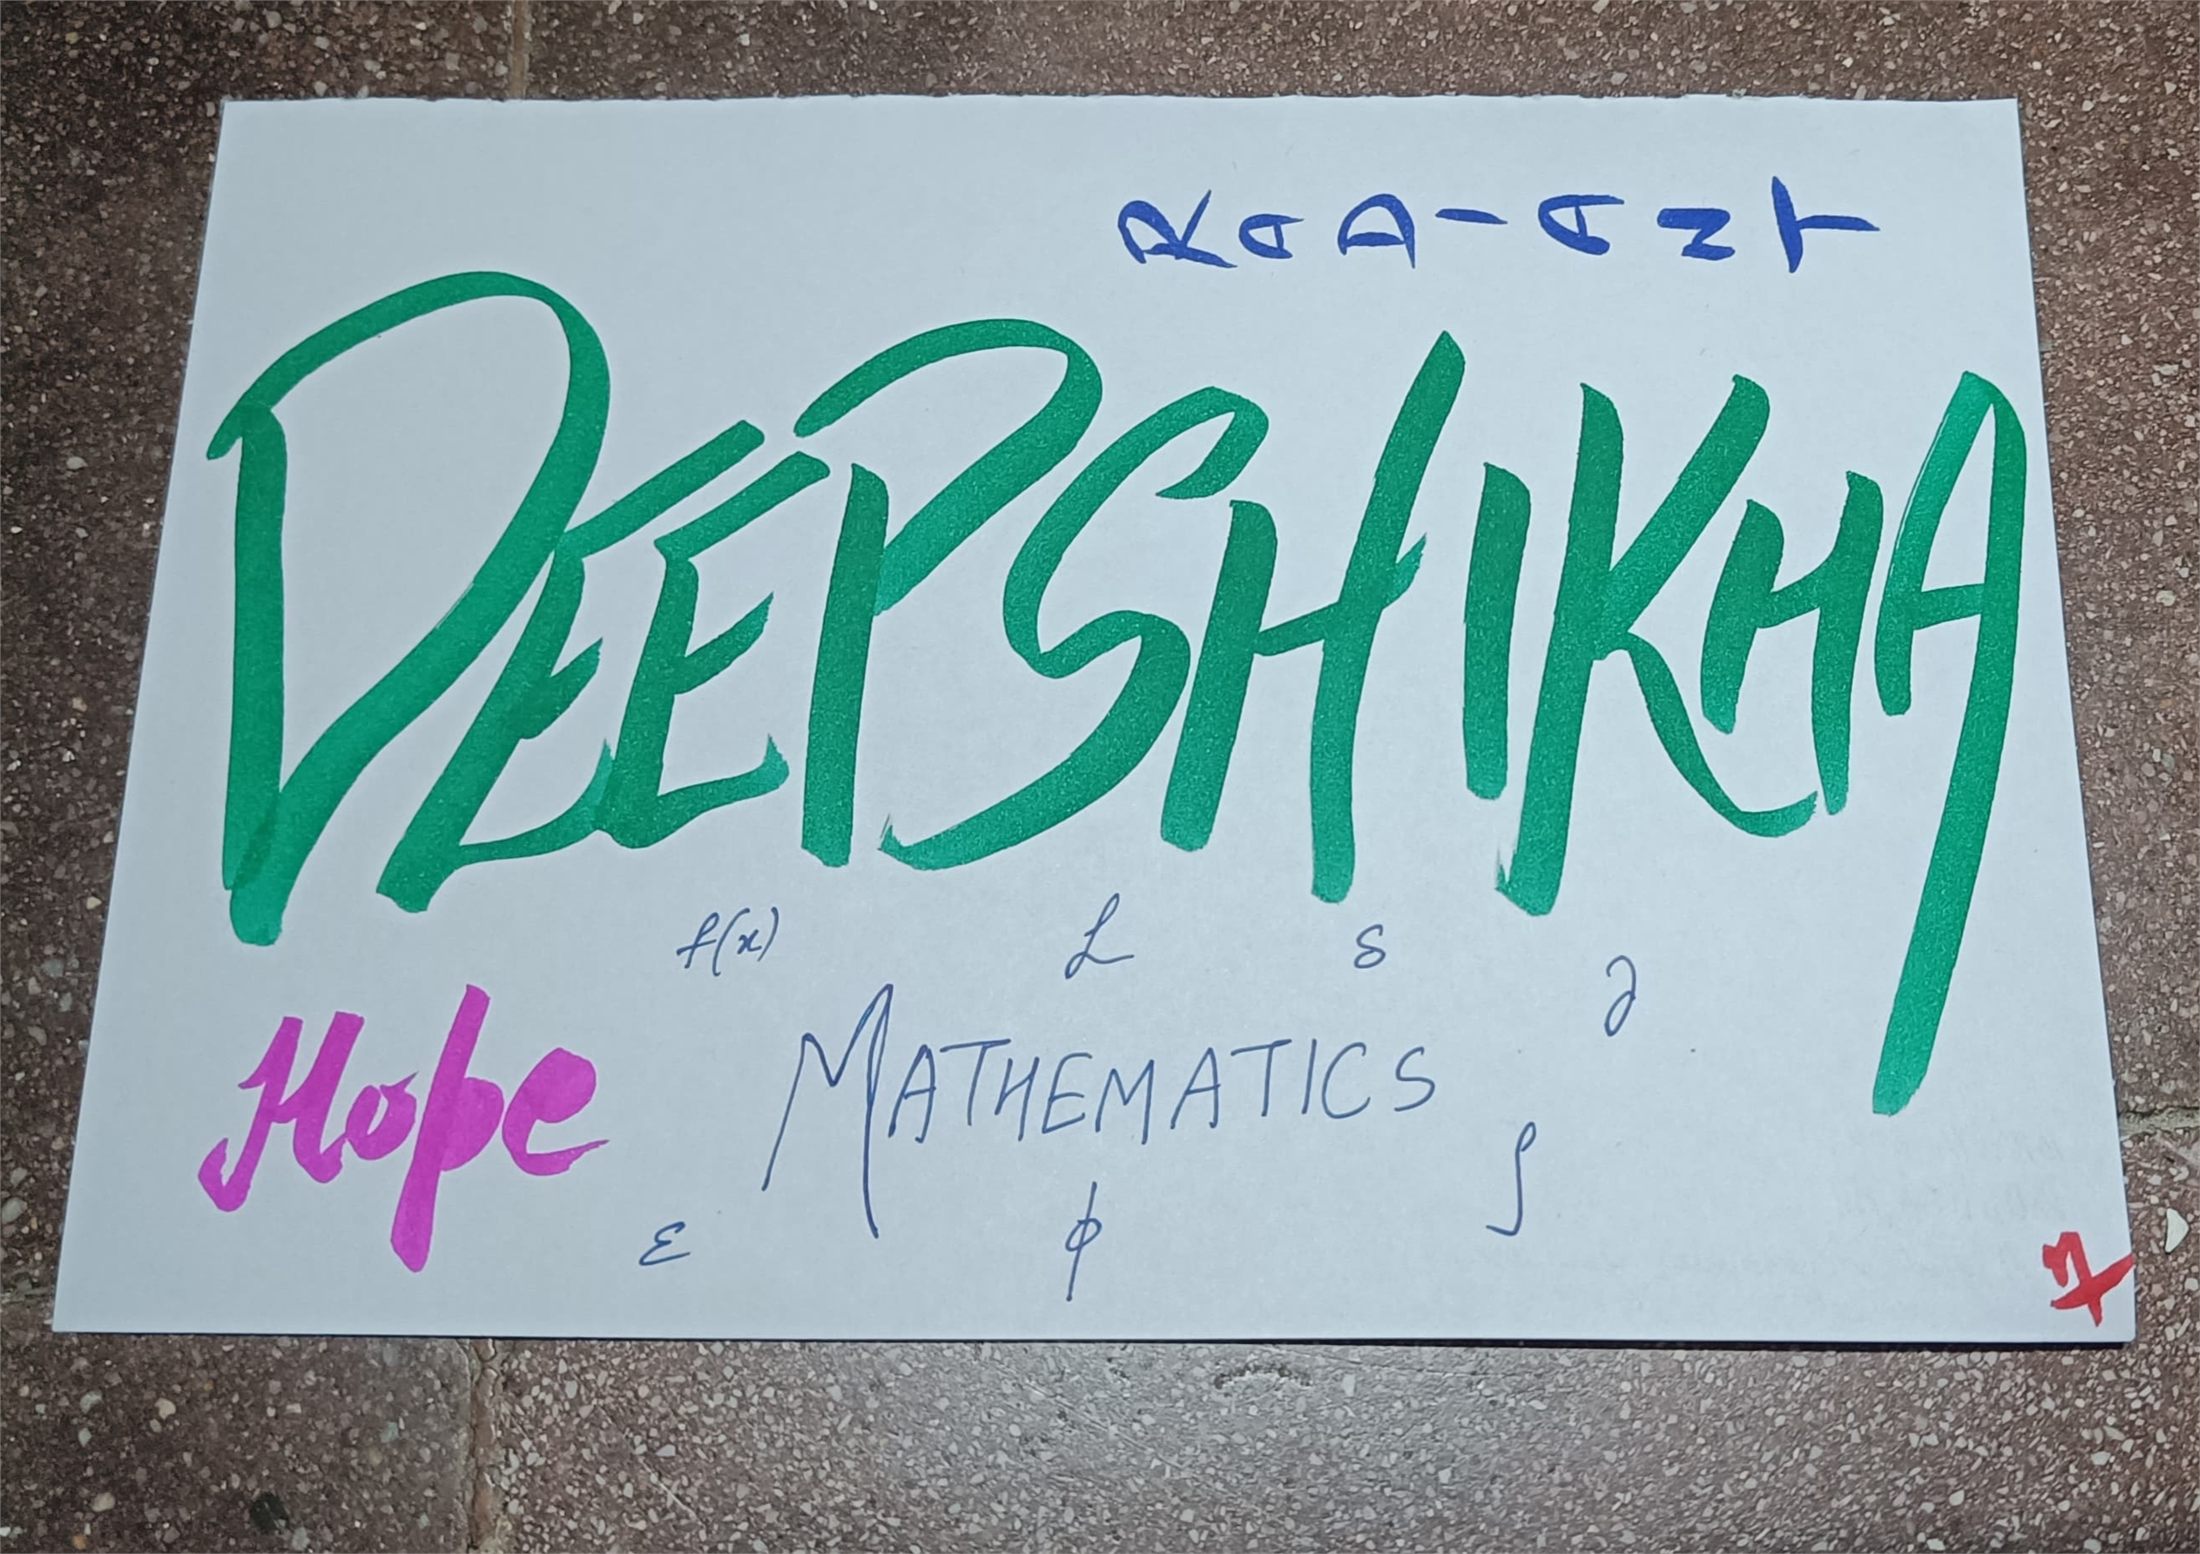 RADIANT
DEEPSHIKHA
f(x) L δ ∂
Hope
MATHEMATICS
ε ϕ ∫